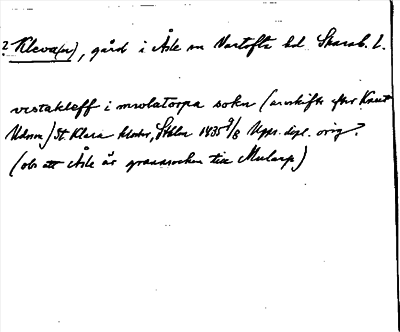 ? Kleva(n), gård i Åsle sn Vartofta hd. Skarab. L.
vestakleff i mwlatorpa sokn (arvskifte efter Knut
Udsson) St. Klara kloster, Sthlm 1435 9/8 Upps. dipl. orig.
(obs att Åsle är grannsocken till Mularp)